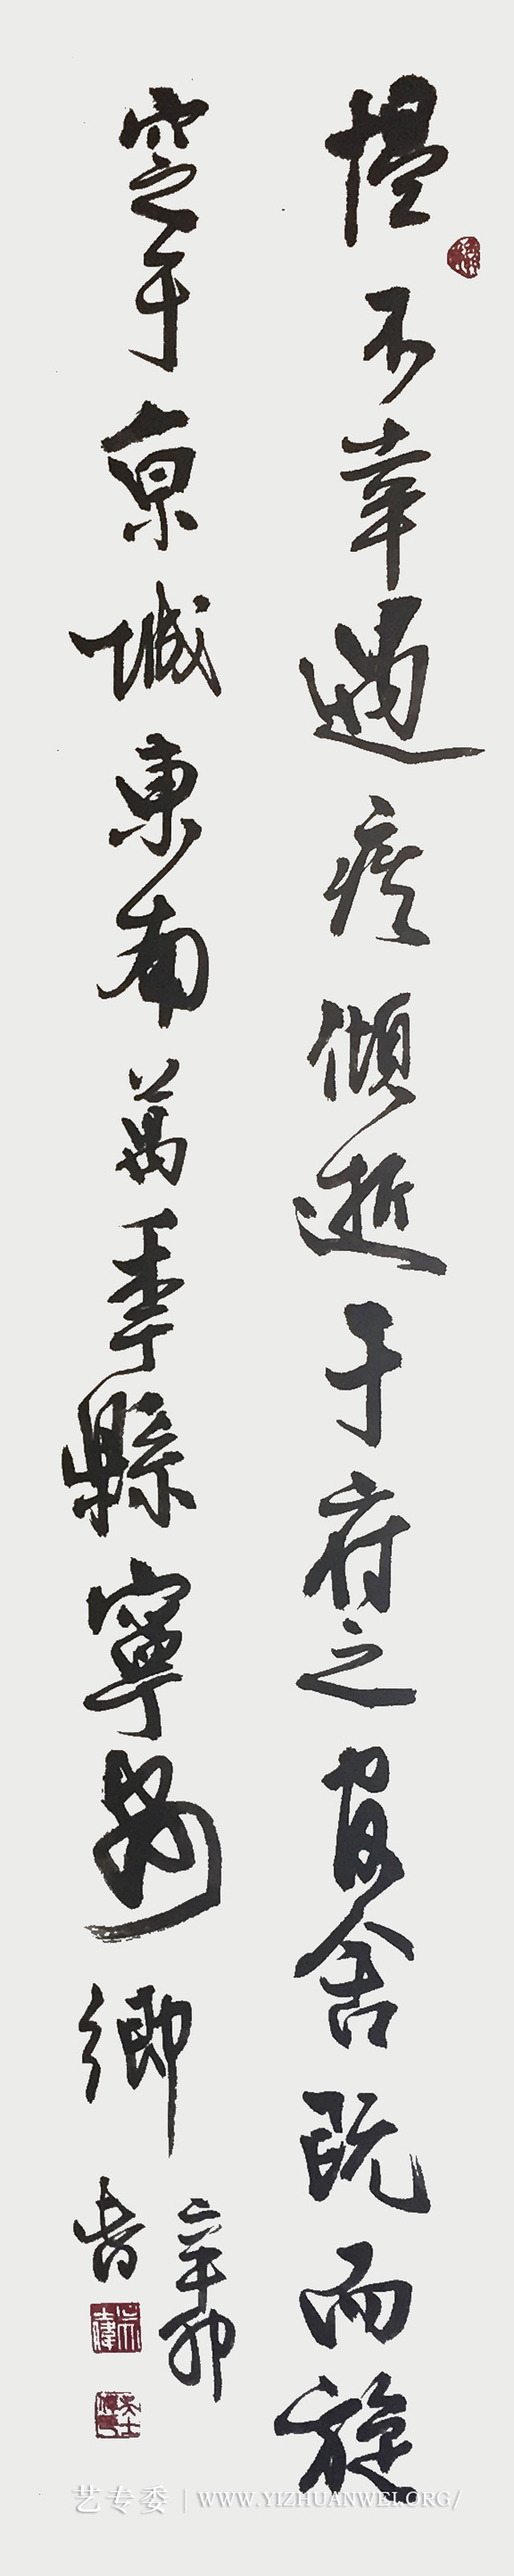 不幸遇疾傾逝于府之官舍既而旋
窆于京城東南萬年縣寧鄉
辛卯
書
艺专委 | WWW.YIZHUANWEI.ORG/